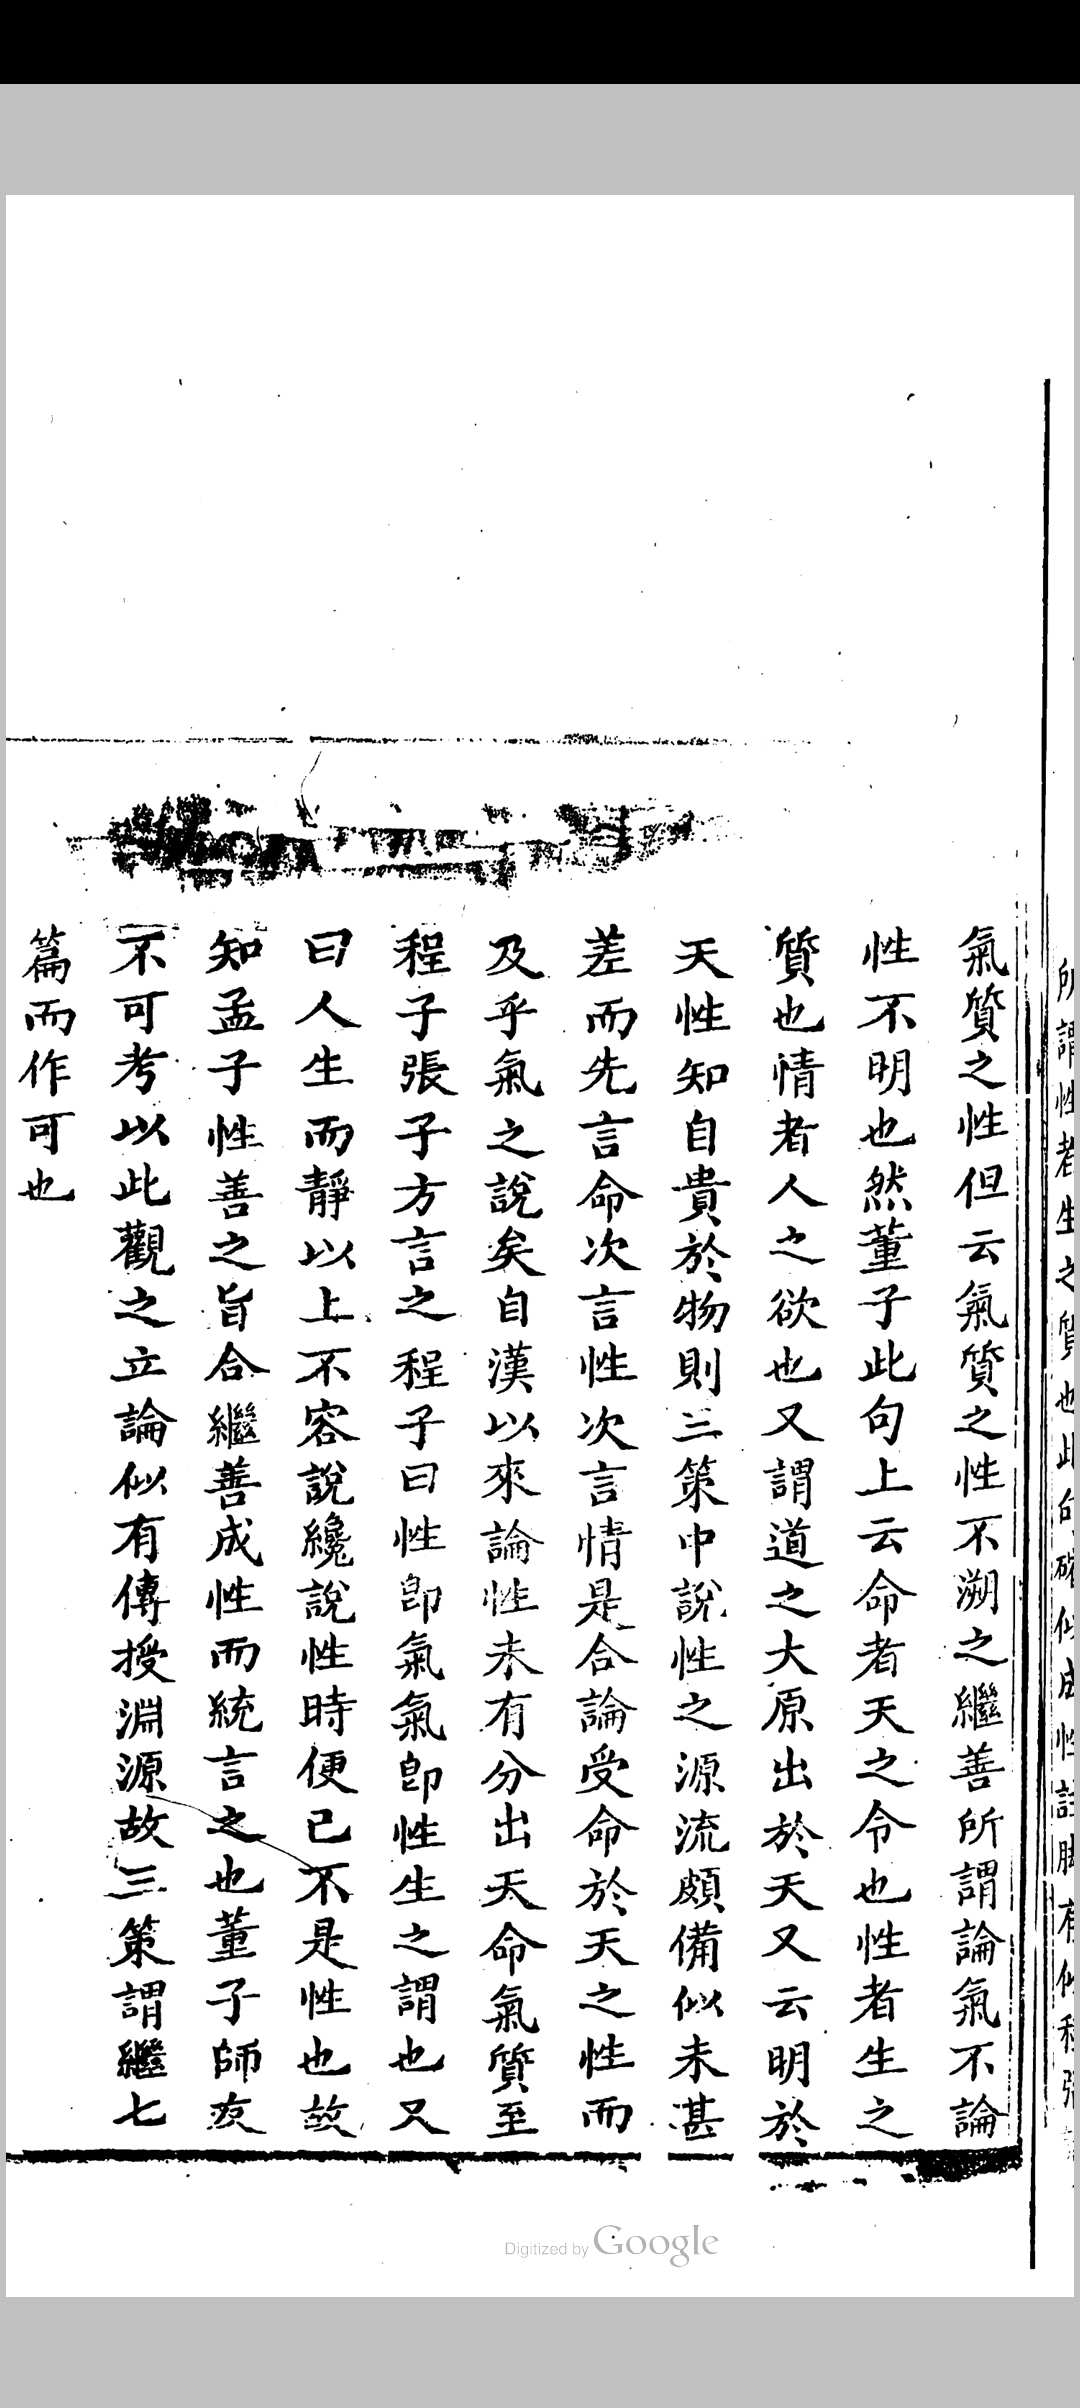 所謂性者生之質也此句
氣質之性但云氣質之性不溯之繼善所謂論氣不論
性不明也然董子此句上云命者天之令也性者生之
質也情者人之欲也又謂道之大原出於天又云明於
天性知自貴於物則三策中說性之源流頗備似未甚
差而先言命次言性次言情是合論受命於天之性而
及乎氣之說矣自漢以來論性未有分出天命氣質至
程子張子方言之程子曰性卽氣氣卽性生之謂也又
曰人生而靜以上不容說纔說性時便已不是性也故
知孟子性善之旨合繼善成性而統言之也董子師友
不可考以此觀之立論似有傳授淵源故三策謂繼七
篇而作可也
Digitized by Google